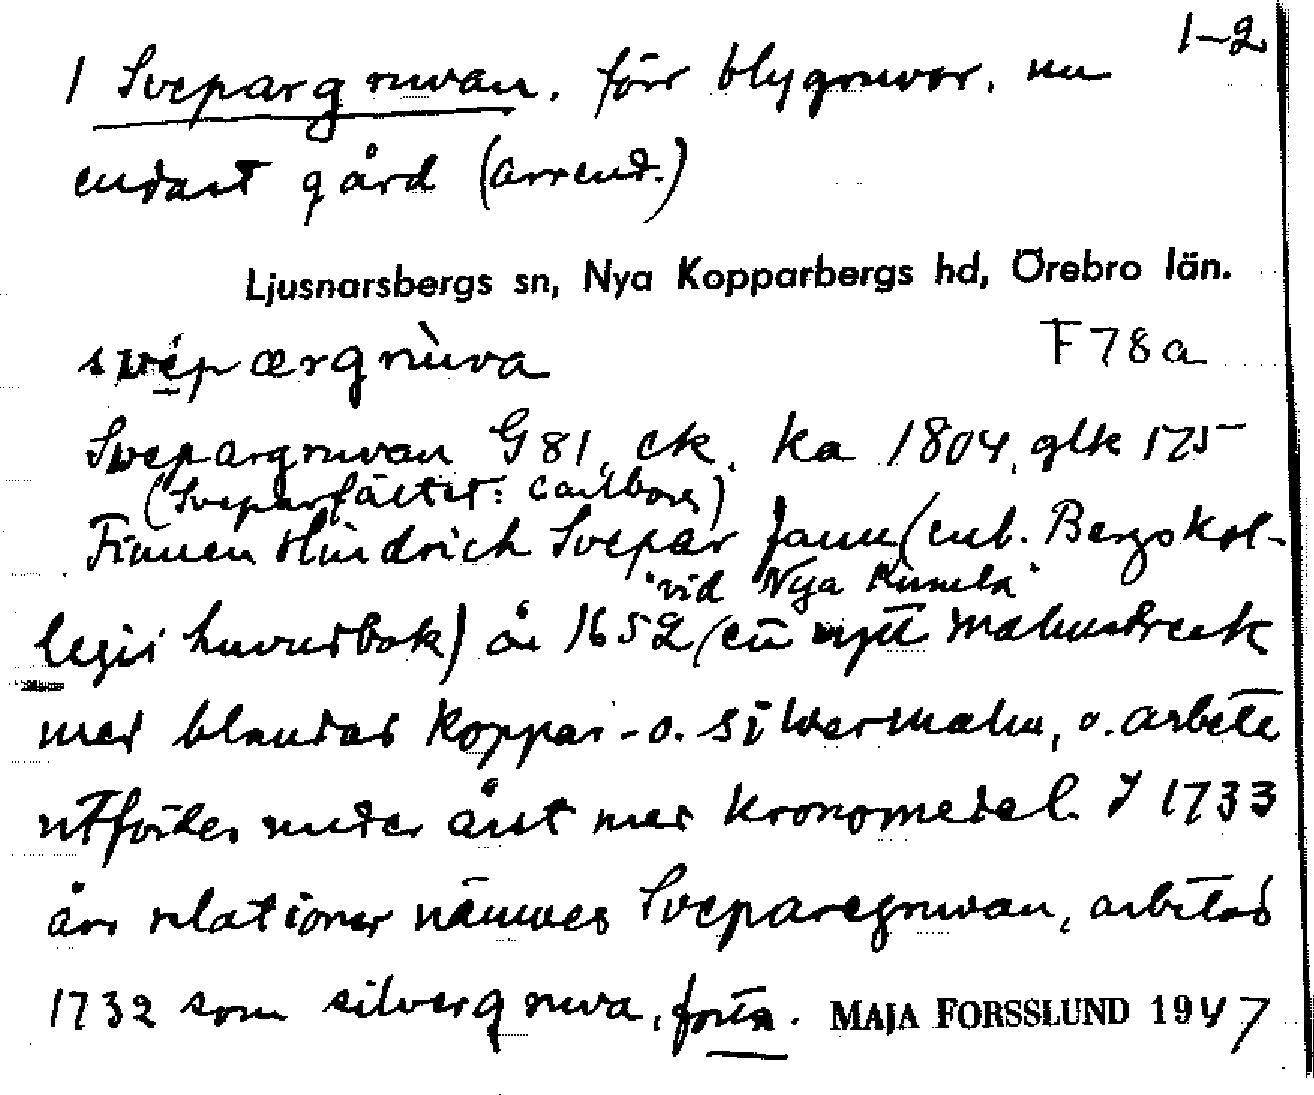 1-2
1 Svepargruvan, förr blygruvor, nu
endast gård (arrend.)
Ljusnarsbergs sn, Nya Kopparbergs hd, Örebro län.
svépærgrùva F78a
Svepargruvan G81, ek. ka 1804, glk 175
(Sveparfältet: Carlborg)
Finnen Hindrich Svepar fann (enl. Bergskol-
"vid Nya Kumla"
legii huvudbok) år 1652 (ett nytt malmstreck
med blandad koppar- o. silvermalm, o. arbete
utfördes under året med kronomedel. I 1733
års relationer nämnes Sveparegruvan, arbetad
1732 som silvergruva, forts. MAJA FORSSLUND 1947